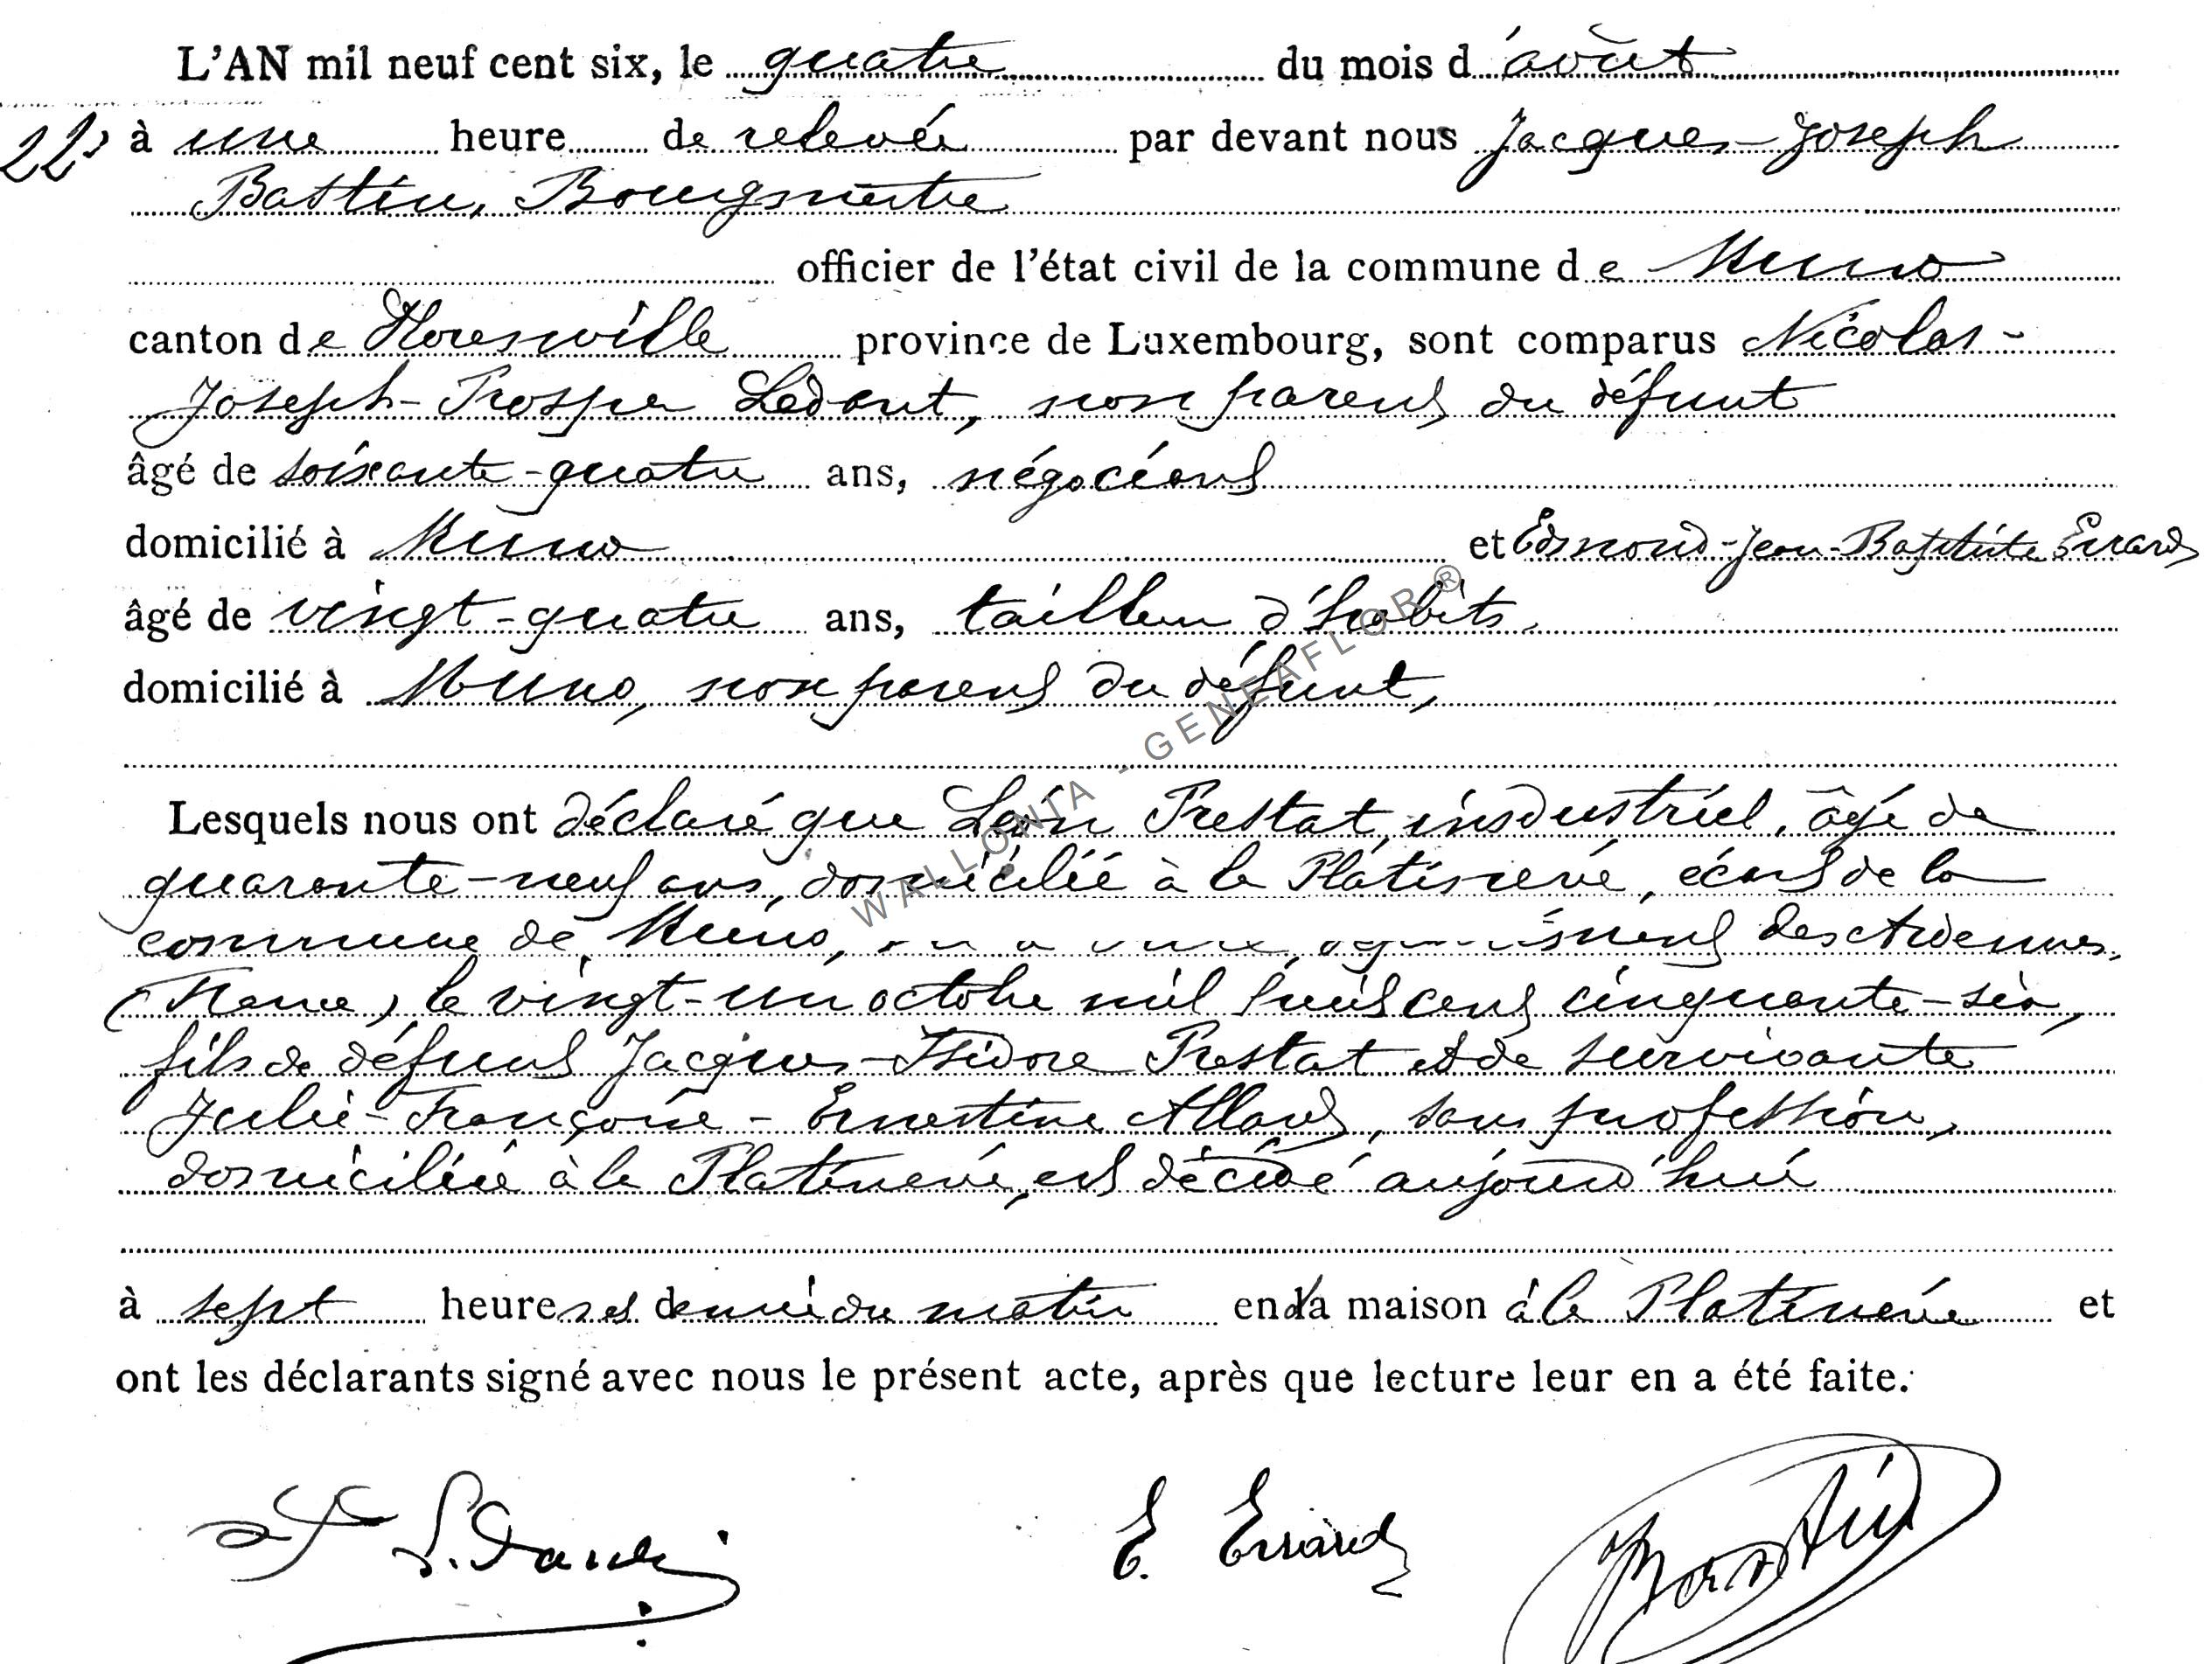 L'AN mil neuf cent six, le quatre du mois d'août
22 à une heure de relevée par devant nous Jacques-Joseph
Bastin, Bourgmestre
officier de l'état civil de la commune de Muno
canton de Florenville province de Luxembourg, sont comparus Nicolas-
Joseph-Prosper Ledant, non parent du défunt
âgé de soixante-quatre ans, négociant
domicilié à Muno et Edmond-Jean-Baptiste Errard
âgé de vingt-quatre ans, tailleur d'habits,
domicilié à Muno, non parent du défunt,
Lesquels nous ont déclaré que Léon Prestat, industriel, âgé de
quarante-neuf ans, domicilié à la Platinerie, écart de la
commune de Muno, des Ardennes,
(France) le vingt-un octobre mil huit cent cinquante-six,
fils de défunt Jacques-Isidore Prestat et de survivante
Julie-Françoise-Ernestine Allard, sans profession,
domiciliée à la Platinerie, est décédé aujourd'hui
à sept heures et demie du matin en la maison à la Platinerie et
ont les déclarants signé avec nous le présent acte, après que lecture leur en a été faite.
E. Errard Bastin
WALLONIA - GENEAFLOR®